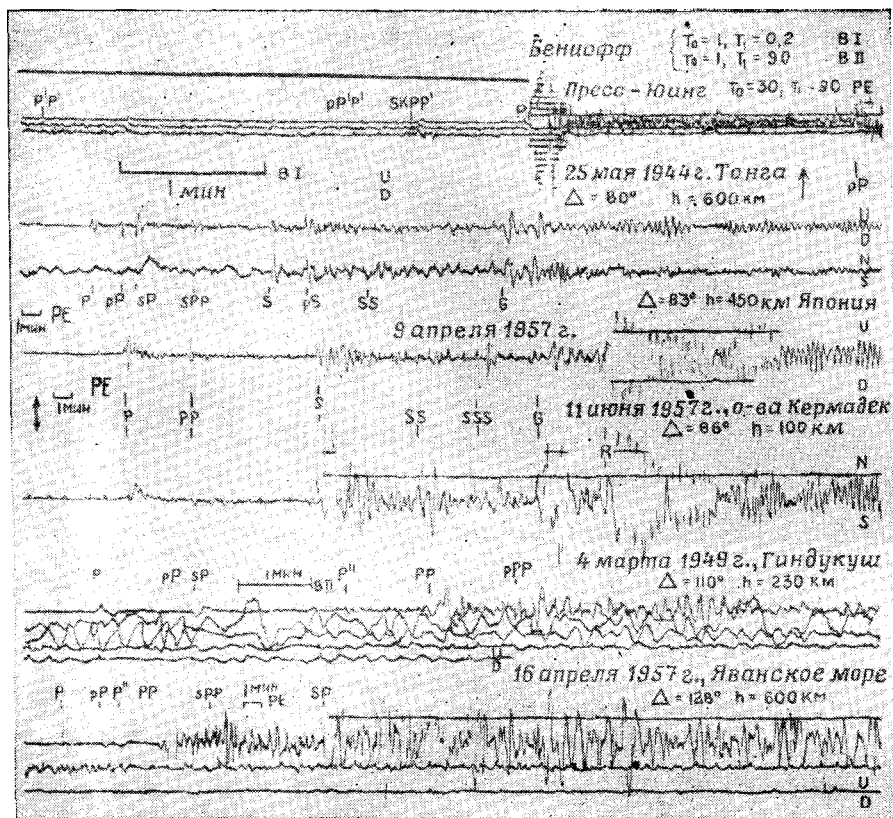 Бениофф
T₀=1, T₁=0,2 BI
T₀=1, T₁=90 BII
Пресс-Юинг T₀=30, T₁-90 PE
P'P' PP'P' SKPP' P
1 мин BI U D
25 мая 1944 г. Тонга
Δ=80° h=600 км
pP
U
D
N
S
P pP sP sPP S pS SS G
Δ=83° h=450 км Япония
1 мин PE
9 апреля 1957 г.
U
D
PE
1 мин
P PP S SS SSS G
11 июня 1957 г., о-ва Кермадек
Δ=86° h=100 км
R
N
S
4 марта 1949 г., Гиндукуш
Δ=110° h=230 км
P pP sP 1 мин BII P" PP PPP
U
D
16 апреля 1957 г., Яванское море
Δ=128° h=600 км
P pP P" PP sPP 1 мин PE SP
U
D